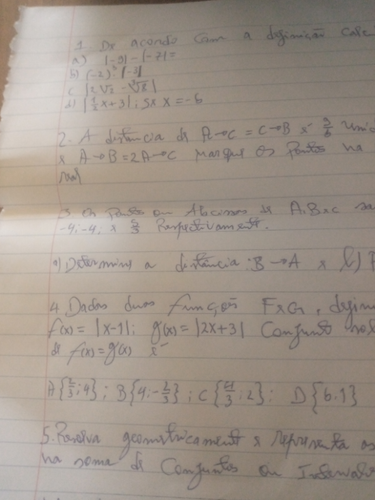 1. De acordo com a definição calc
a) |-9| - |-7| =
b) (-2)³ · |-3|
c) |2√2 - √8|
d) |1/2 x + 3|, se x = -6
2. A distância de A→C = C→B é 9/6 unid
e A→B = 2A→C marque os Pontos na
real
3. Os Pontos em Abcissas de A, B e C sa
-4, -4, e Respectivamente.
a) Determine a distância: B→A e b)
4. Dadas duas função F e G, defini
f(x) = |x-1|; g(x) = |2x+3| Conjunto
de f(x) = g(x) é
A{2/3; 4}; B{4; -2/3}; C{ /3; 2}: D{6.1}
5. Resolva geometricament e represente as
na soma de Conjuntos ou Intervalo